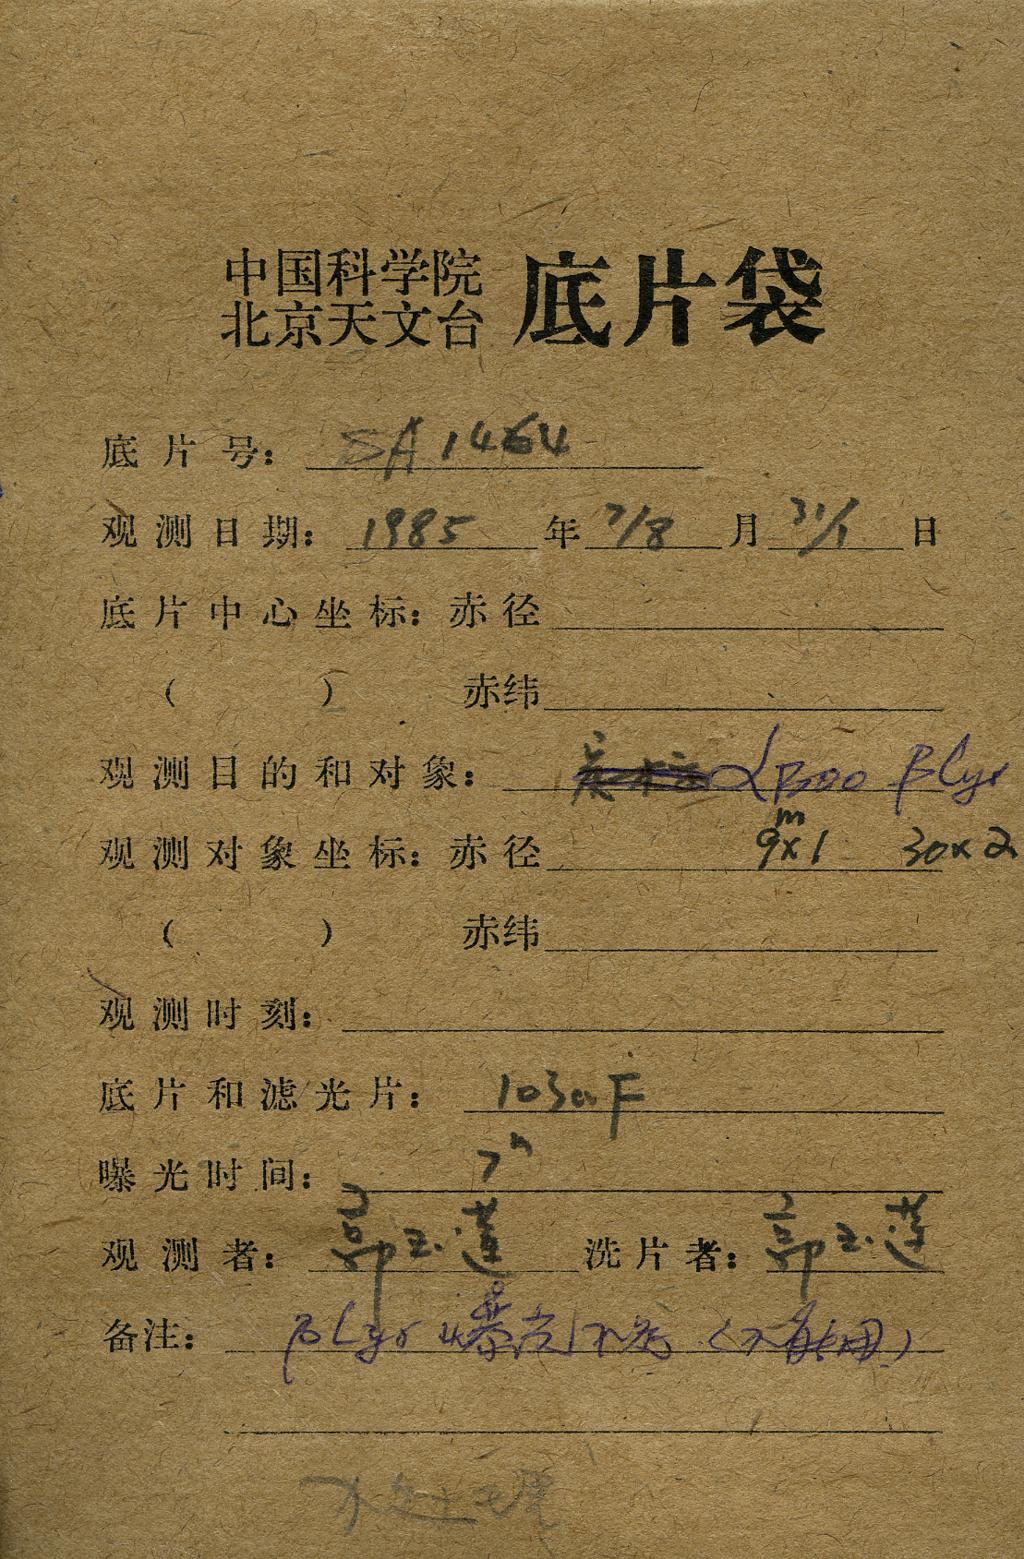 中国科学院
北京天文台 底片袋
底片号: SA1464
观测日期: 1985 年 7/8 月 31/1 日
底片中心坐标: 赤径
( ) 赤纬
观测目的和对象: αBoo βLyr
观测对象坐标: 赤径 9ᵐx1 30x2
( ) 赤纬
观测时刻:
底片和滤光片: 103aF
曝光时间: 7ʰ
观测者: 郭玉莲 洗片者: 郭玉莲
备注: βLyr 曝光不够 (不能用)